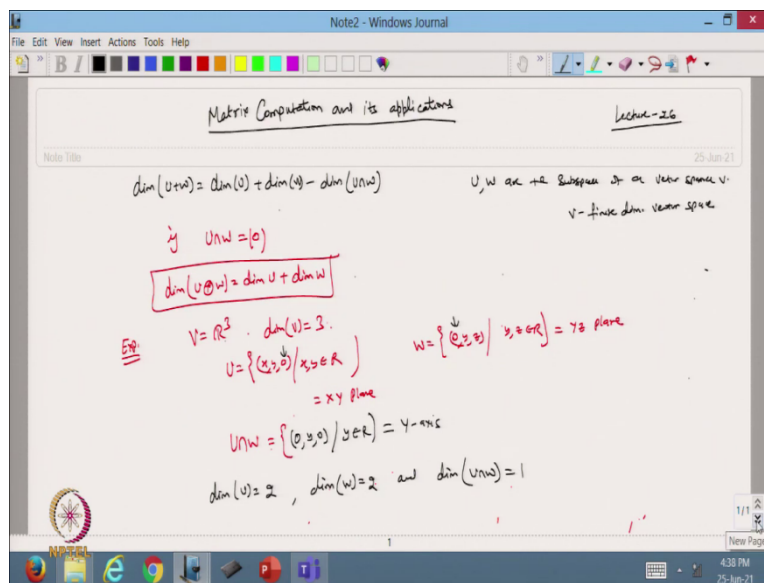 Note2 - Windows Journal
File Edit View Insert Actions Tools Help
B I
Matrix Computation and its applications
Lecture-26
Note Title
25-Jun-21
dim(U+W) = dim(U) + dim(W) - dim(U∩W)
U, W are the subspace of a vector space V.
V - finite dim. vector space
if U∩W = {0}
dim(U⊕W) = dim U + dim W
Exp: V = R^3 . dim(V) = 3.
U = {(x,y,0) / x,y ∈ R}
W = {(0,y,z) / y,z ∈ R} = YZ plane
= XY plane
U∩W = {(0,y,0) / y ∈ R} = Y-axis
dim(U) = 2 , dim(W) = 2 and dim(U∩W) = 1
1/1
NPTEL
1
New Page
4:38 PM
25-Jun-21